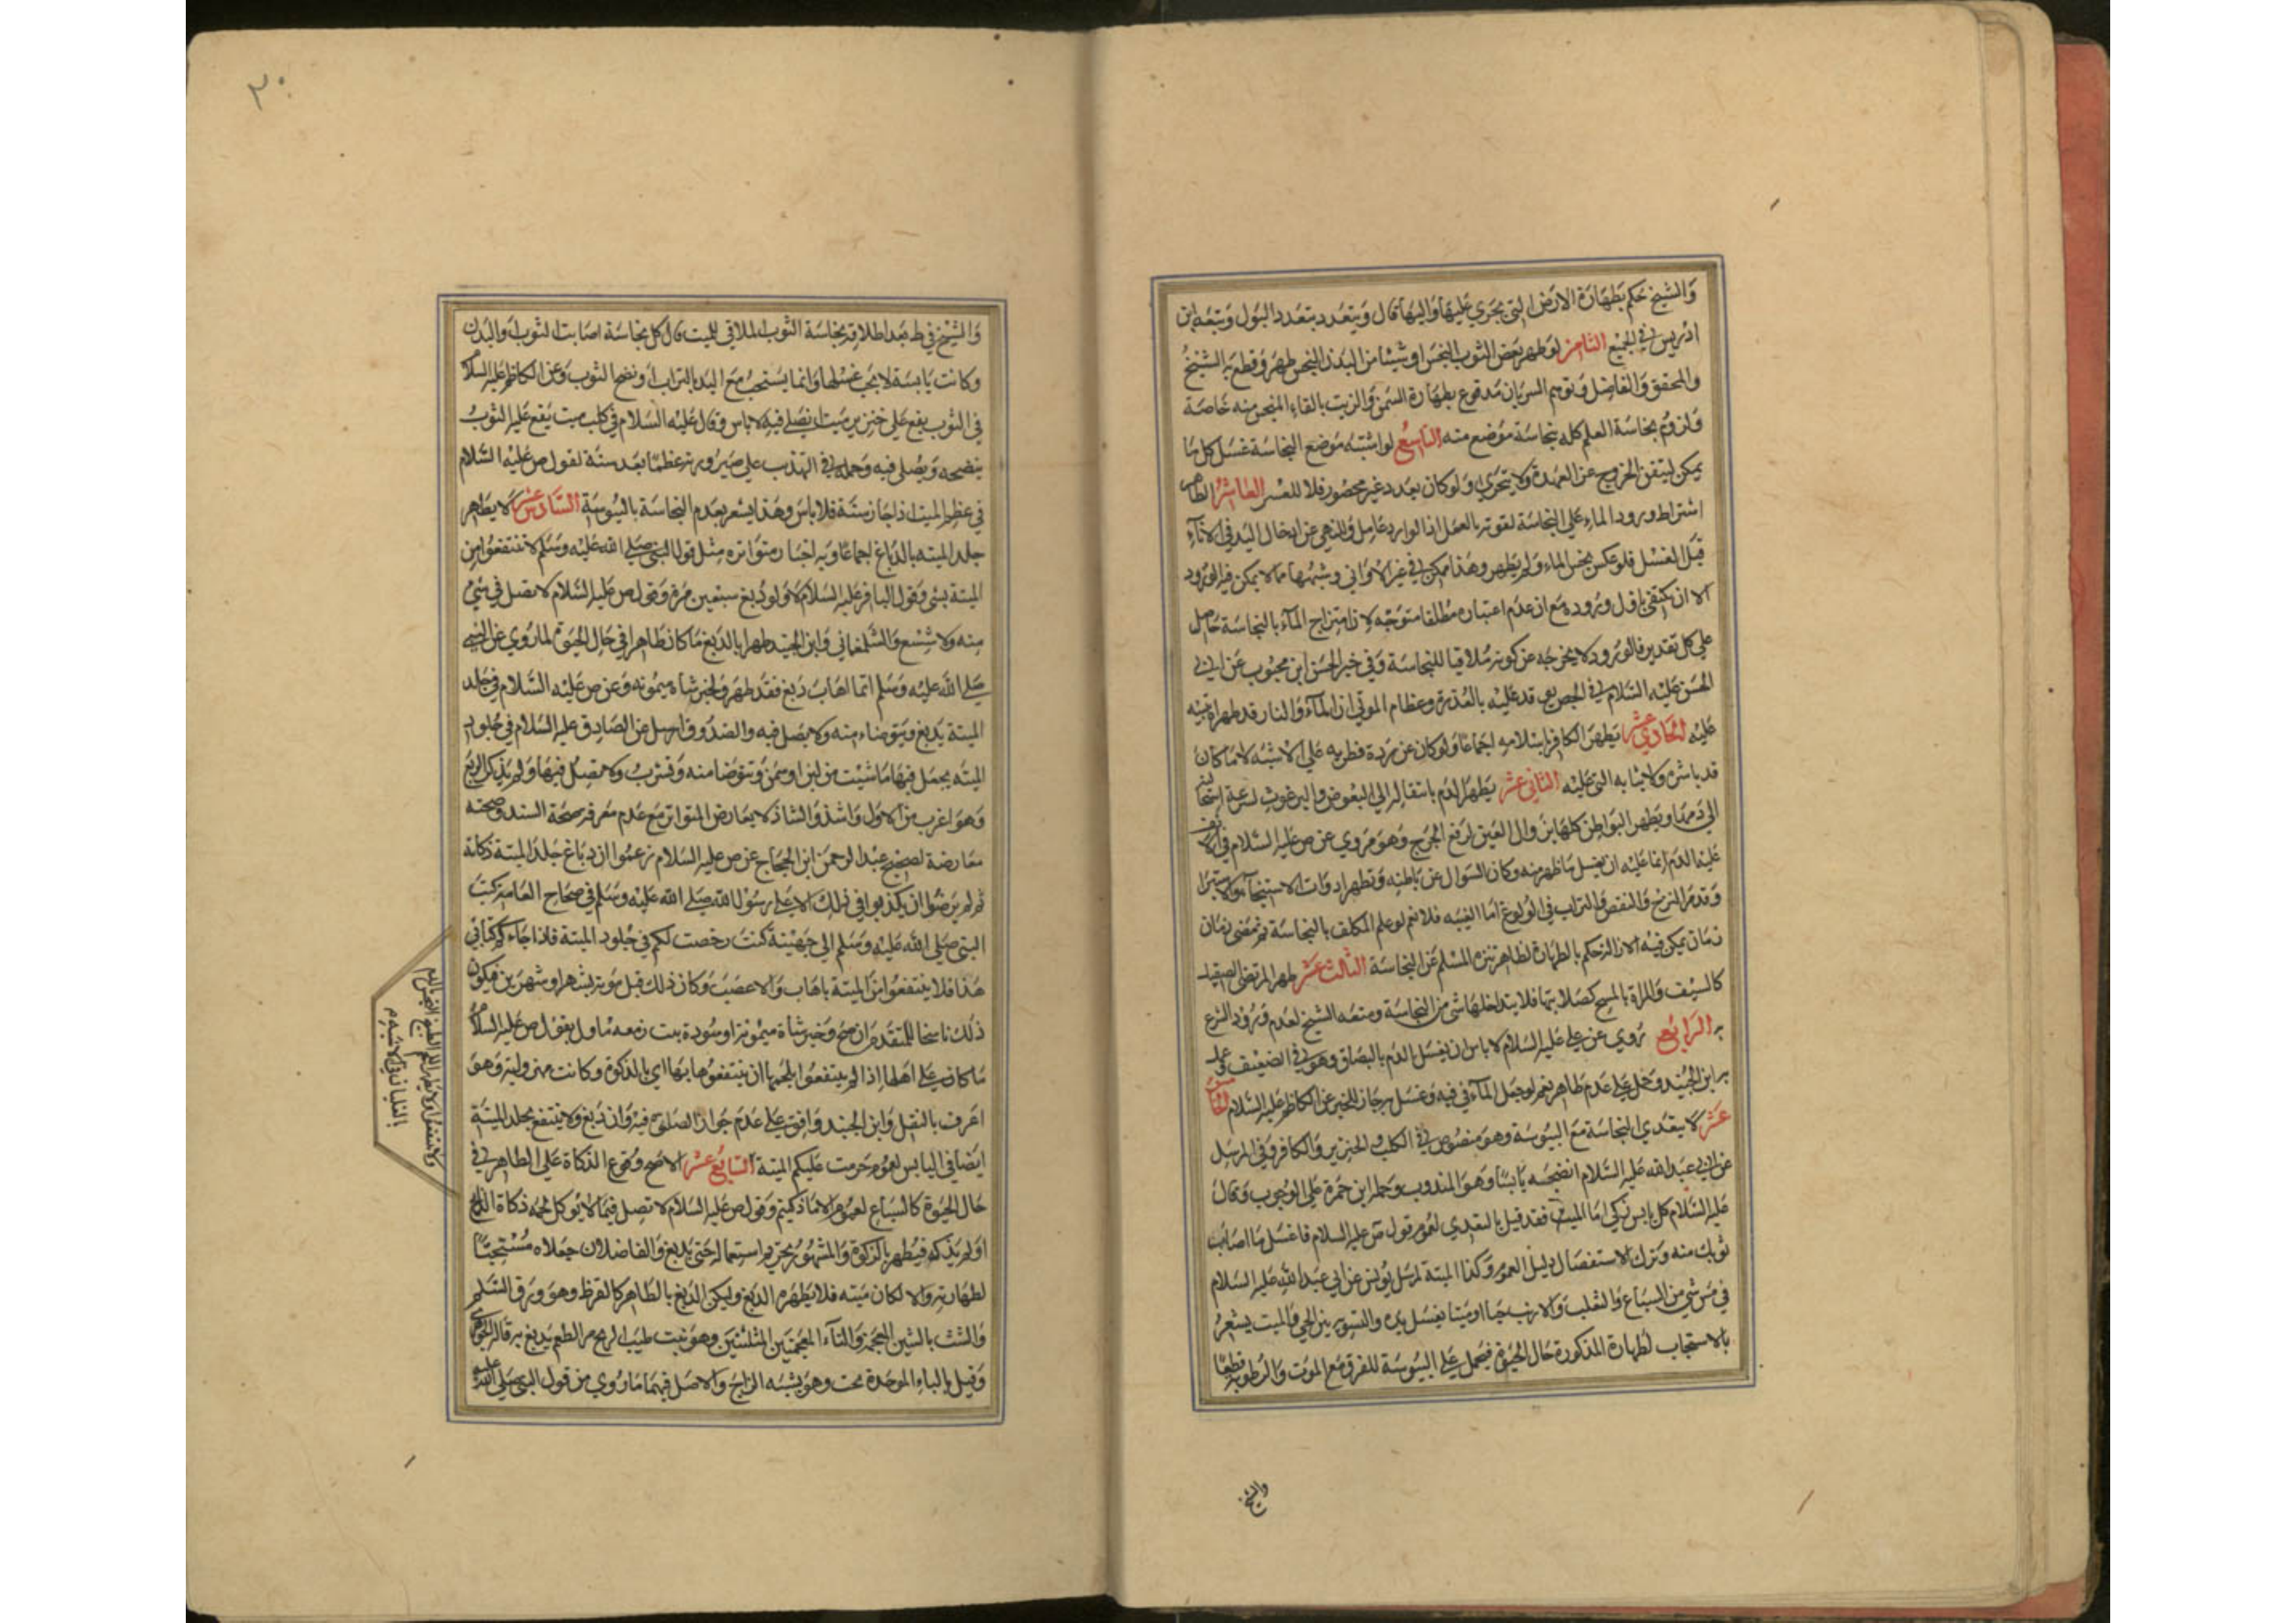 والشيخ حكم بطهارة الارض التي يجري عليها واليها قال ويتعدد بتعدد البول وتبعه ابن
ادريس في الجميع الثامن لو طهر بعض الثوب النجس او شيئا من البدن النجس طهر وقطع به الشيخ
والمحقق والفاضل وتوهم السريان مدفوع بطهارة السمن والزيت بالقاء المنجس منه خاصة
ولزوم نجاسة العلم كله بنجاسة موضع منه التاسع لو اشتبه موضع النجاسة غسل كل ما
يمكن ليتقن الخروج عن العهدة ولا يتحري ولو كان بعدد غير محصور فلا للعسر العاشر الظاهر
اشتراط ورود الماء علي النجاسة لقوته بالعمل اذ الوارد عامل وللنهي عن ادخال اليد في الاناء
قبل الغسل فلو عكس نجس الماء ولم يطهر وهذا ممكن في غير الاواني وشبهها مما لا يمكن فيه الورود
الا ان يكتفي باول وروده مع ان عدم اعتباره مطلقا متوجه لان امتزاج الماء بالنجاسة حاصل
علي كل تقدير فالورود لا يخرجه عن كونه ملاقيا للنجاسة وفي خبر الحسن ابن محبوب عن ابي
الحسن عليه السلام في الجص يوقد عليه بالعذرة وعظام الموتي ان الماء والنار قد طهراه تنبيه
عليه الحادي عشر يطهر الكافر باسلامه اجماعا ولو كان عن ردة فطريه علي الاشبه لا ما كان
قد باشره ولا ثيابه التي عليه الثاني عشر يطهر الدم بانتقاله الي البعوض والبرغوث لسرعة استحالته
الي دمها ويطهر البواطن كلها بزوال العين لرفع الحرج وهو مروي عن ص عليه السلام في انف
عليه الدم انما عليه ان يغسل ما ظهر منه وكان السوال عن باطنه وتطهر ادوات الاستنجاء والاستبرا
وقد مر النزح والنقص والتراب في الولوغ اما الغيبه فلا نعم لو علم المكلف بالنجاسة ثم تمضي زمان
زمان يمكن فيه الازالة حكم بالطهارة لظاهر تنزه المسلم عن النجاسة الثالث عشر طهر المرتضى الصيقل
كالسيف والمراة بالمسح كصلابتها فلا يتداخلها شي من النجاسة ومنعه الشيخ لعدم ورود الشرع
به الرابع روي عن علي عليه السلام لا باس ان يغسل الدم بالبصاق وهو في الضعيف وعمل
به ابن الجنيد وحمل علي عدم طاهر نعم لو جعل الماء في فيه وغسل به جاز للخبر عن الكاظم عليه السلام الخامس
عشر لا يتعدي النجاسة مع اليبوسة وهو منصوص في الكلب والخنزير والكافر وفي المرسل
عن ابي عبد الله عليه السلام انضحه يابسا وهو المندوب وحمله ابن حمزة علي الوجوب وقال
عليه السلام كل يابس ذكي اما الميت فقد قيل بالتعدي لعموم قول ص عليه السلام فاغسل ما اصاب
ثوبك منه وترك الاستفصال دليل العموم وكذا الميتة لمرسل يونس عن ابي عبد الله عليه السلام
في مس شي من السباع والثعلب والارنب حيا او ميتا يغسل يده والتسويه بين الحي والميت يشعر
بالاستحباب لطهارة المذكورة حال الحيوة فيحمل علي اليبوسة للفرق مع الموت والرطوبة قطعا
والشيخ
٣٠
والشيخ في ط بعد اطلاقه بنجاسة الثوب الملاقي للميت قال كل نجاسة اصابت الثوب او البدن
وكانت يابسة لا يجب غسلها وانما يستحب مسح اليد بالتراب او نضح الثوب وعن الكاظم عليه السلام
في الثوب يقع علي خنزير ميت ايصلي فيه لا باس وقال عليه السلام في كلب ميت يقع عليه الثوب
ينضحه ويصلي فيه وحمله في التهذيب علي صيرورته عظما بعد سنة لقول ص عليه السلام
في عظم الميت اذا جاز سنة فلا باس وهذا يشعر بعدم النجاسة باليبوسة السادس عشر لا يطهر
جلد الميته بالدباغ اجماعا وبه اخبار متواتره مثل قول النبي صلي الله عليه وسلم لا تنتفعوا من
الميتة بشي وقول الباقر عليه السلام لا ولو دبغ سبعين مرة وقول ص عليه السلام لا تصل في شي
منه ولا شسع والشلمغاني وابن الجنيد طهرا بالدبغ ما كان طاهرا في حال الحيوة لما روي عن النبي
صلي الله عليه وسلم ايما اهاب دبغ فقد طهر ولخبر شاة ميمونه وعن ص عليه السلام في جلد
الميتة يدبغ ويتوضاء منه ولا يصل فيه والصدوق ارسل عن الصادق عليه السلام في جلود
الميته يجعل فيها ما شئت من لبن او سمن وتتوضا منه وتشرب ولا تصل فيها ولم يذكر الدبغ
وهو اغرب من الاول واشذ والشاذ لا يعارض المتواتر مع عدم معرفه صحة السند وصحته
معارضة لصحيح عبد الرحمن ابن الحجاج عن ص عليه السلام زعموا ان دباغ جلد الميتة ذكاته
ثم لم يرضوا ان يكذبوا في ذلك الا علي رسول الله صلي الله عليه وسلم في صحاح العامة كتب
النبي صلي الله عليه وسلم الي جهينة كنت رخصت لكم في جلود الميتة فاذا جاءكم كتابي
هذا فلا ينتفعوا من الميتة باهاب ولا عصب وكان ذلك قبل موته بشهر او شهرين فيكون
ذلك ناسخا للمتقدم ان صح وخبر شاة ميمونة او سودة بنت زمعه ماول بقول ص عليه السلام
ما كان علي اهلها اذا لم ينتفعوا بلحمها ان ينتفعوا باهابها اي بالذكوة وكانت مهزولة وهو
اعرف بالنقل وابن الجنيد وافق علي عدم جواز الصلوة فيه وان دبغ ولا ينتفع بجلد الميتة
ايضا في اليابس لعموم حرمت عليكم الميتة السابع عشر الاصح وقوع الذكاة علي الطاهر في
حال الحيوة كالسباع لعموم الا ما ذكيتم وقول ص عليه السلام لا تصل فيما لا يوكل لحمه ذكاة الذابح
او لم يذكه فيطهر بالذكوة والمشهور تحريم استعماله حتي يدبغ والفاضلان جعلاه مستحبا
لطهارته والا لكان ميته فلا يطهره الدبغ وليكن الدبغ بالطاهر كالقرظ وهو ورق السلم
والشث بالشين المعجمة والثاء المعجمتين المثلثتين وهو نبت طيب الريح مر الطعم يدبغ به قاله الجوهري
وقيل بالباء الموحدة تحت وهو يشبه الزاج والاصل فيهما ما روي من قول النبي صلي الله عليه